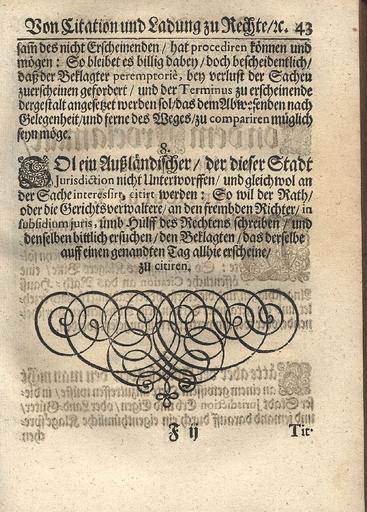 Von Citation und Ladung zu Rechte/ꝛc. 43
sam des nicht Erscheinenden / hat procediren können und
mögen: So bleibet es billig dabey / doch bescheidentlich/
daß der Beklagter peremptoriè, bey verlust der Sachen
zuerscheinen gefordert / und der Terminus zu erscheinende
dergestalt angesetzet werden sol/das dem Abwesenden nach
Gelegenheit/und ferne des Weges/zu compariren müglich
seyn möge.
8.
SOl ein Außländischer / der dieser Stadt
Jurisdiction nicht Unterworffen / und gleichwol an
der Sache interessirt, citirt werden: So wil der Rath/
oder die Gerichtsverwaltere/an den frembden Richter/ in
subsidium juris, ümb Hülff des Rechtens schreiben / und
denselben bittlich ersuchen / den Beklagten / das derselbe
auff einen genandten Tag allhie erscheine/
zu citiren.
F ij
Tit: